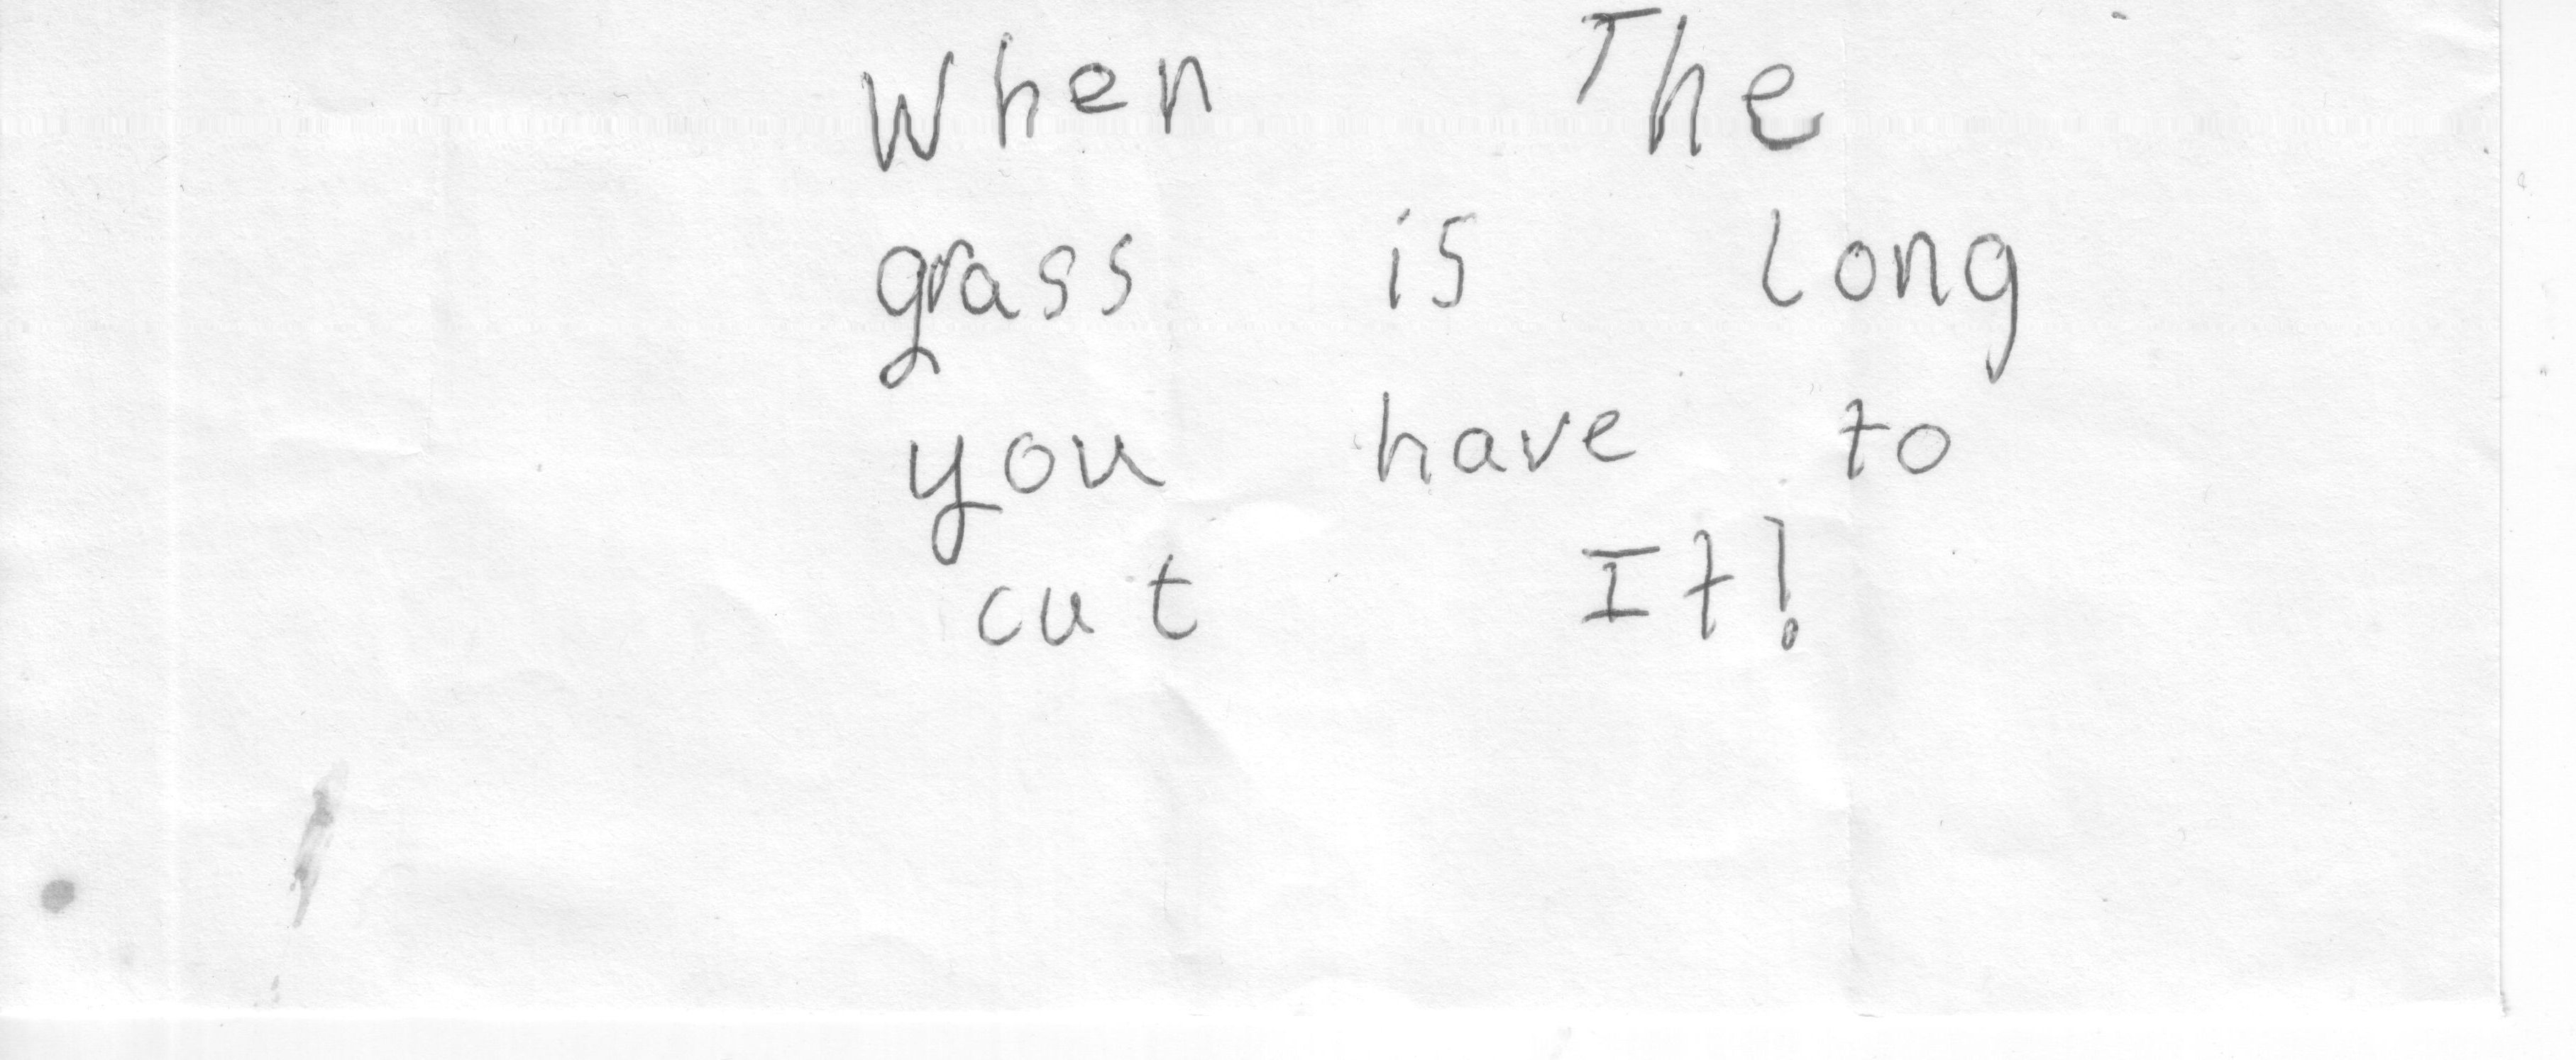 When The
grass is long
you have to
cut It!